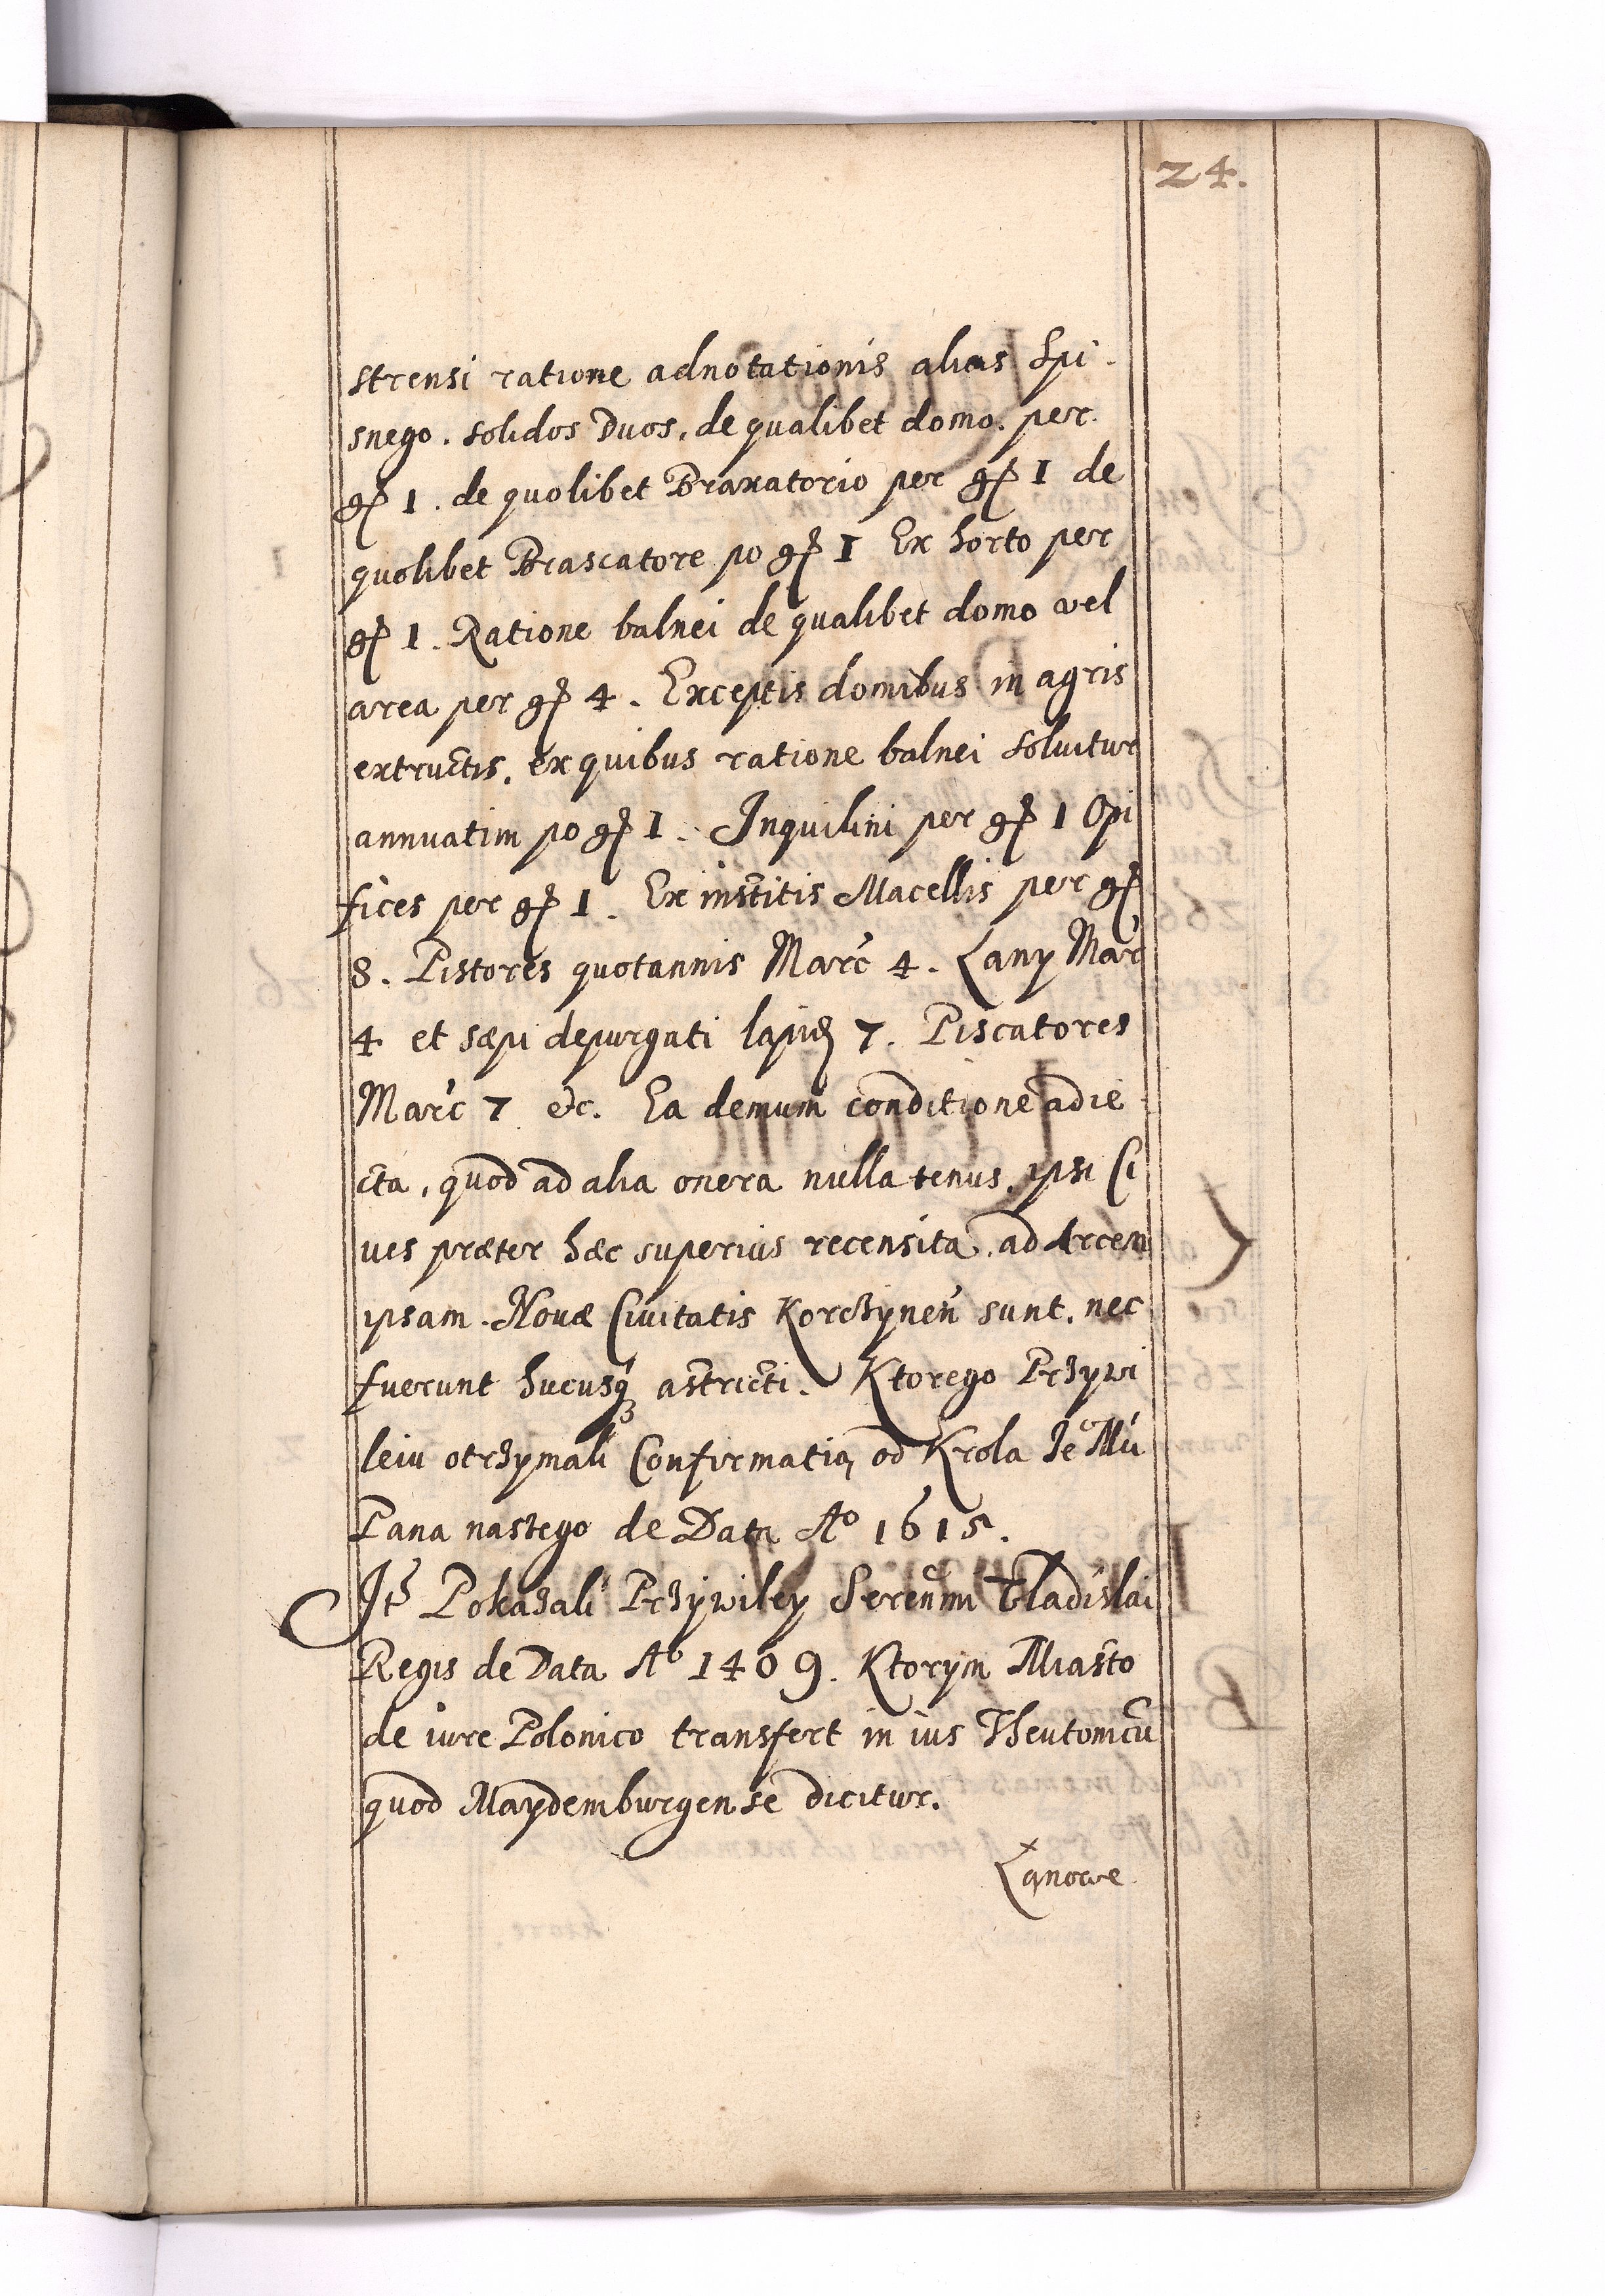 24.
strensi ratione adnotationis alias Spi-
snego. solidos Duos. de qualibet domo. per.
gr 1. de quolibet Braxatorio per gr 1 de
quolibet Brascatore po gr 1 Ex horto per
gr 1. Ratione balnei de qualibet domo vel
area per gr 4. Exceptis domibus in agris
extructis. ex quibus ratione balnei soluitur
annuatim po gr 1. Inquilini per gr 1 Opi
fices per gr 1. Ex institis Macellis per gr
8. Pistores quotannis Marc 4. Łany Mar
4 et sæpi depurgati lapid 7. Piscatores
Marc 7 etc. Ea demum conditione adie
cta, quod ad alia onera nulla tenus. ipsi Ci
ues præter hæc superius recensita. ad Arcem
ipsam. Nouæ Ciuitatis Korczynen sunt. nec
fuerunt hucusq astricti. Ktorego Przywi
leiu otrzymali Confirmatią od Krola Je° Mći
Pana naszego de Data A° 1615.
Ite Pokazali Przywiley Serenmi Vladislai
Regis de Data A° 1409. Ktorym Miasto
de iure Polonico transfert in ius Theutonicū
quod Maydemburgense dicitur.
Łanowe